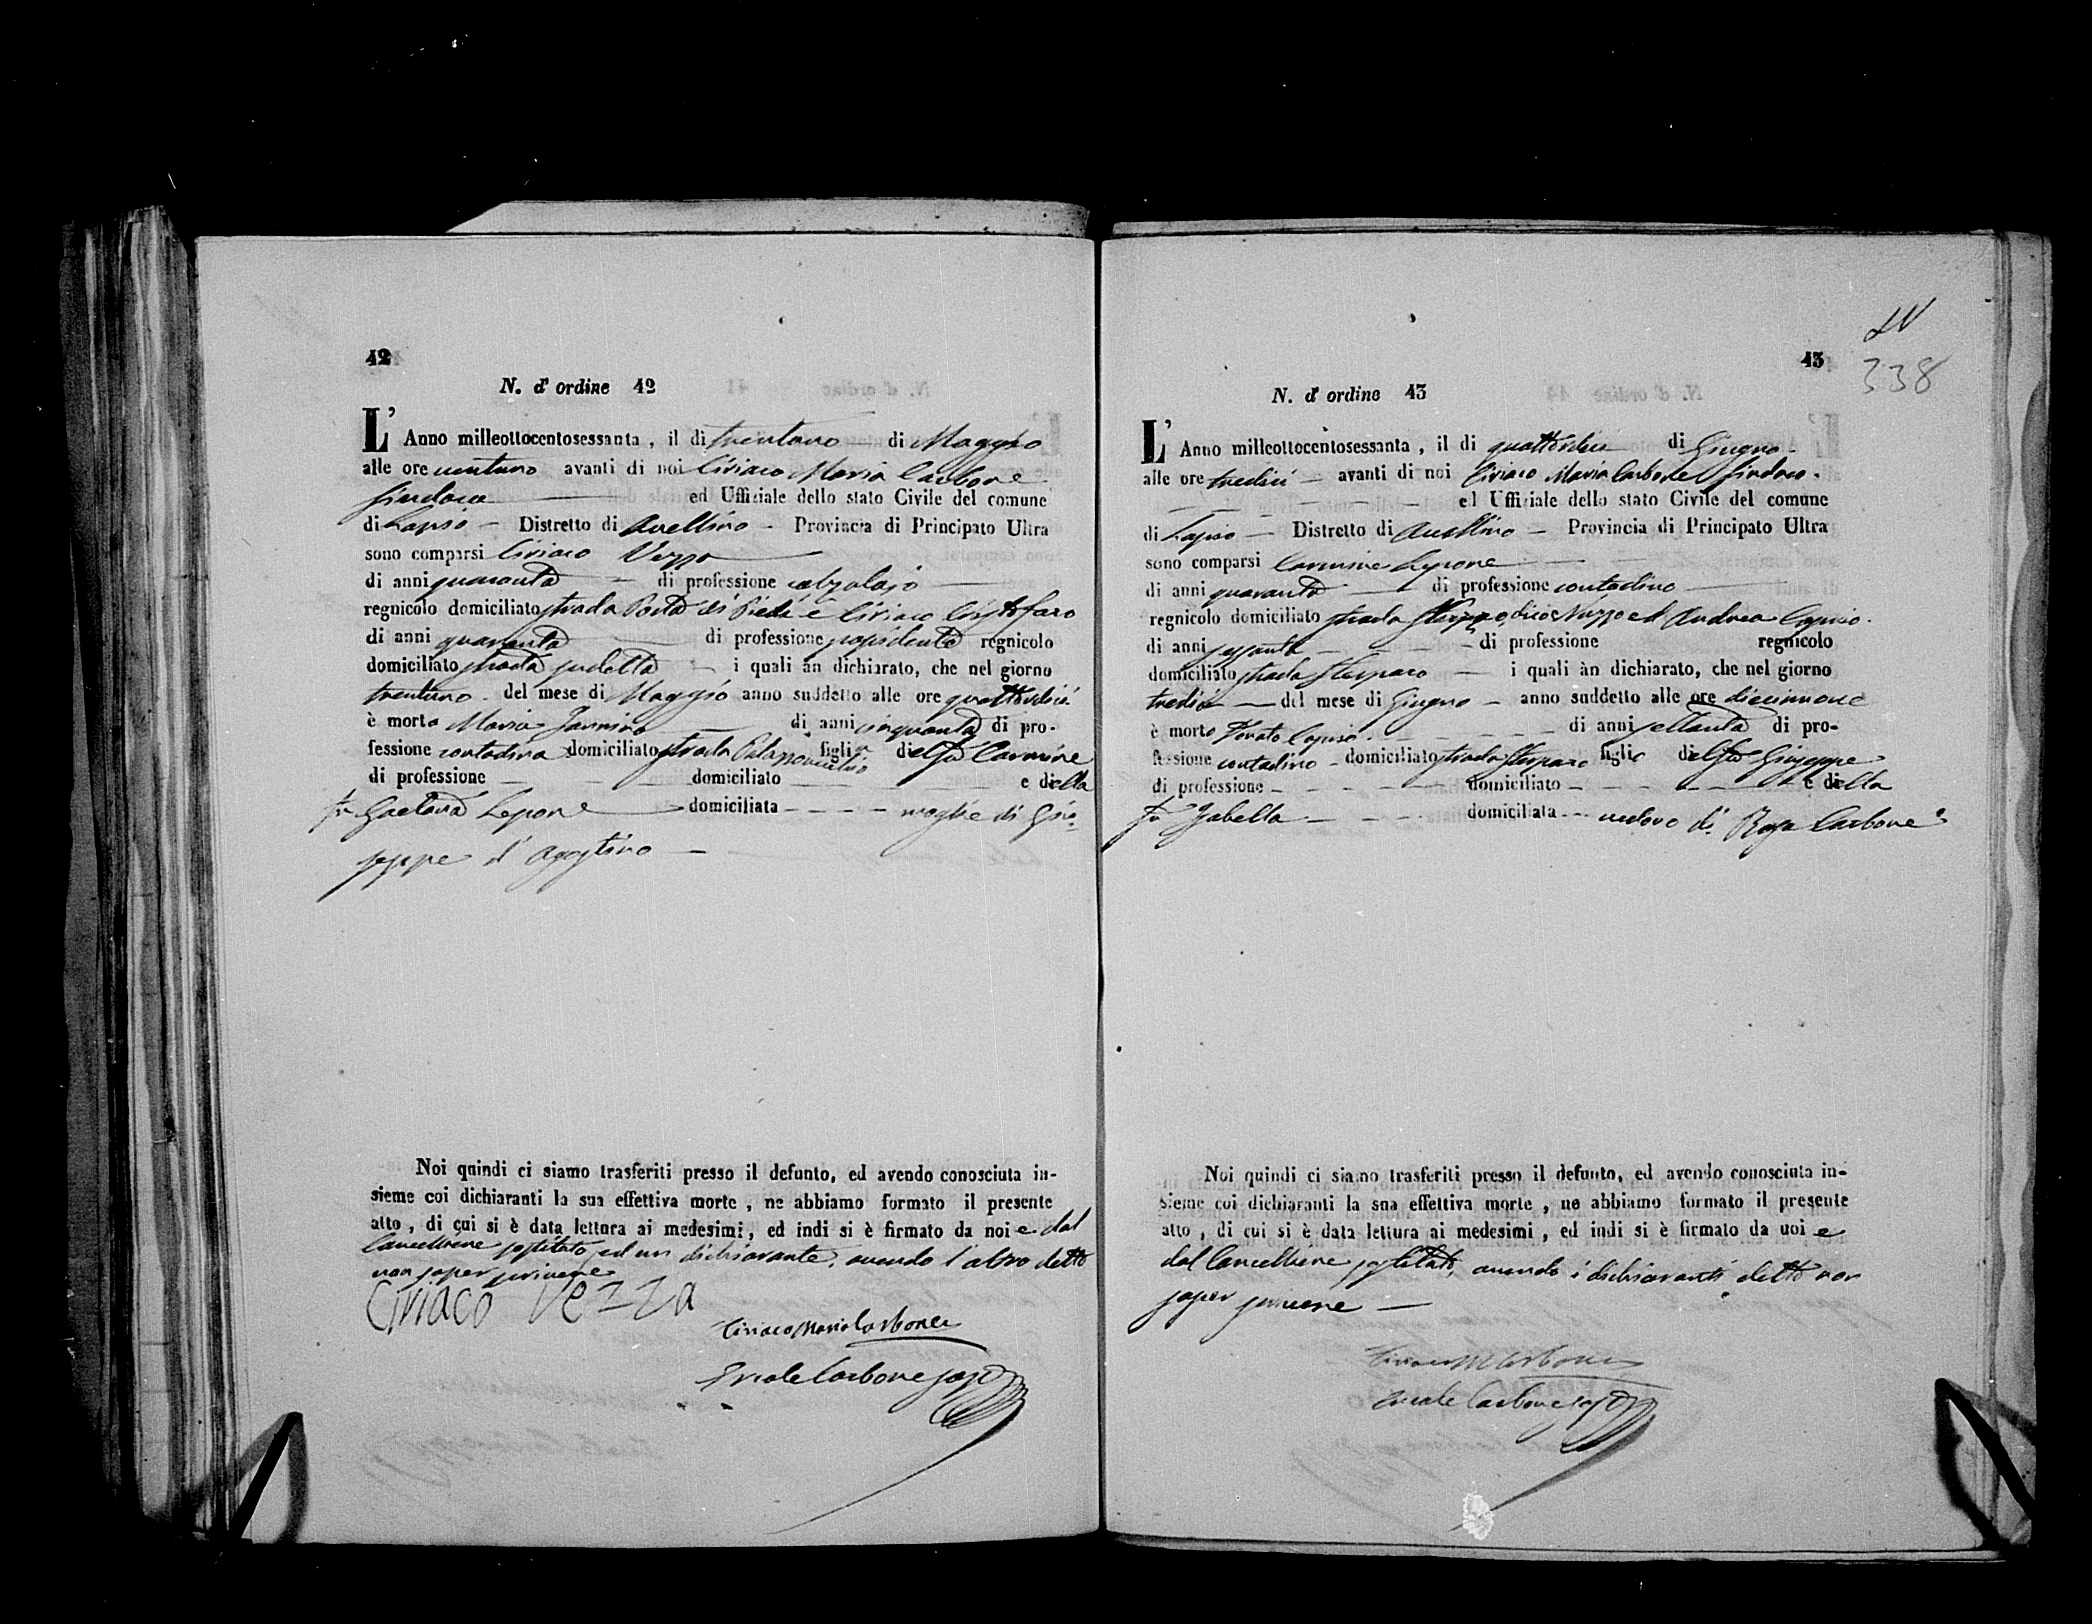 42
N. d' ordine 42
L' Anno milleottocentosessanta, il di trentuno di Maggio
alle ore ventuno avanti di noi Ciriaco Maria Carbone
Sindaco ed Uffiziale dello stato Civile del comune
di Lapio Distretto di Avellino Provincia di Principato Ultra
sono comparsi Ciriaco Vezza
di anni quaranta di professione calzolajo
regnicolo domiciliato strada Porta di Piedi e Ciriaco Cristofaro
di anni quaranta di professione regnicolo
domiciliato strada i quali àn dichiarato, che nel giorno
trentuno del mese di Maggio anno suddetto alle ore quattordici
è morto Maria Jannino di anni cinquanta di pro-
fessione contadina domiciliato strada Palazzo figlia del fu Carmine
di professione domiciliato e della
fu Gaetana Lepore domiciliata moglie di Giu-
seppe d'Agostino
Noi quindi ci siamo trasferiti presso il defunto, ed avendo conosciuta in-
sieme coi dichiaranti la sua effettiva morte, ne abbiamo formato il presente
atto, di cui si è data lettura ai medesimi, ed indi si è firmato da noi e dal
Cancelliere sostituto, ed un dichiarante, avendo l'altro detto
non saper scrivere
Ciriaco Vezza
Ciriaco Maria Carbone
Ercole Carbone sost
LV
43
338
N. d' ordine 43
L' Anno milleottocentosessanta, il di quattordici di Giugno
alle ore tredici avanti di noi Ciriaco Maria Carbone Sindaco
ed Uffiziale dello stato Civile del comune
di Lapio Distretto di Avellino Provincia di Principato Ultra
sono comparsi Carmine Lepore
di anni quaranta di professione contadino
regnicolo domiciliato strada dico Nuzzo ed Andrea Caputo
di anni sessanta di professione regnicolo
domiciliato strada i quali àn dichiarato, che nel giorno
tredici del mese di Giugno anno suddetto alle ore diecinnove
è morto Donato Caputo di anni settanta di pro-
fessione contadino domiciliato strada figlio del fu Giuseppe
di professione domiciliato e della
fu Isabella domiciliata vedovo di Rosa Carbone
Noi quindi ci siamo trasferiti presso il defunto, ed avendo conosciuta in-
sieme coi dichiaranti la sua effettiva morte, ne abbiamo formato il presente
atto, di cui si è data lettura ai medesimi, ed indi si è firmato da noi e
dal Cancelliere sostituto, avendo i dichiaranti detto non
saper scrivere
Ciriaco M Carbone
Ercole Carbone sost